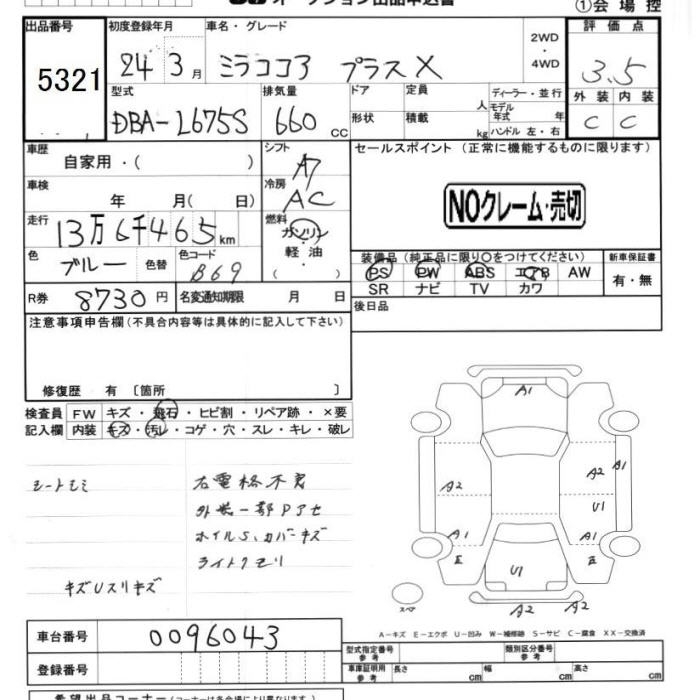 オークション出品申込書
①会場控
出品番号 5321
初度登録年月 24年3月
車名・グレード ミラココア プラスX
2WD・4WD
評価点 3.5
外装 C 内装 C
型式 DBA-L675S
排気量 660cc
ドア形状
定員 人
積載 kg
ディーラー・並行
モデル年式 年
ハンドル 左・右
車歴 自家用・( )
シフト A7
セールスポイント (正常に機能するものに限ります)
車検 年 月( 日)
冷房 AC
NOクレーム・売切
走行 13万6千465km
燃料 ガソリン 軽油 ( )
色 ブルー 色替
色コード B69
装備品 (純正品に限り〇をつけてください)
新車保証書
PS PW ABS エアB AW
有・無
SR ナビ TV カワ
R券 8730円
名変通知期限 月 日
後日品
注意事項申告欄 (不具合内容等は具体的に記入して下さい)
修復歴 有 〔箇所 〕
検査員記入欄
FW キズ・飛石・ヒビ割・リペア跡・×要
内装 キズ・汚レ・コゲ・穴・スレ・キレ・破レ
右電格不良
外装一部Pアセ
ホイルS,カバーキズ
ライトクモリ
キズUスリキズ
A1
A2 A2 B1
U1
A1 A1
E E
U1
スペア
A2 A2
A-キズ E-エクボ U-凹み W-補修跡 S-サビ C-腐食 XX-交換済
車台番号 0096043
登録番号
型式指定番号 参考
類別区分番号 参考
車庫証明用 参考
長さ cm 幅 cm 高さ cm
希望出品コーナー